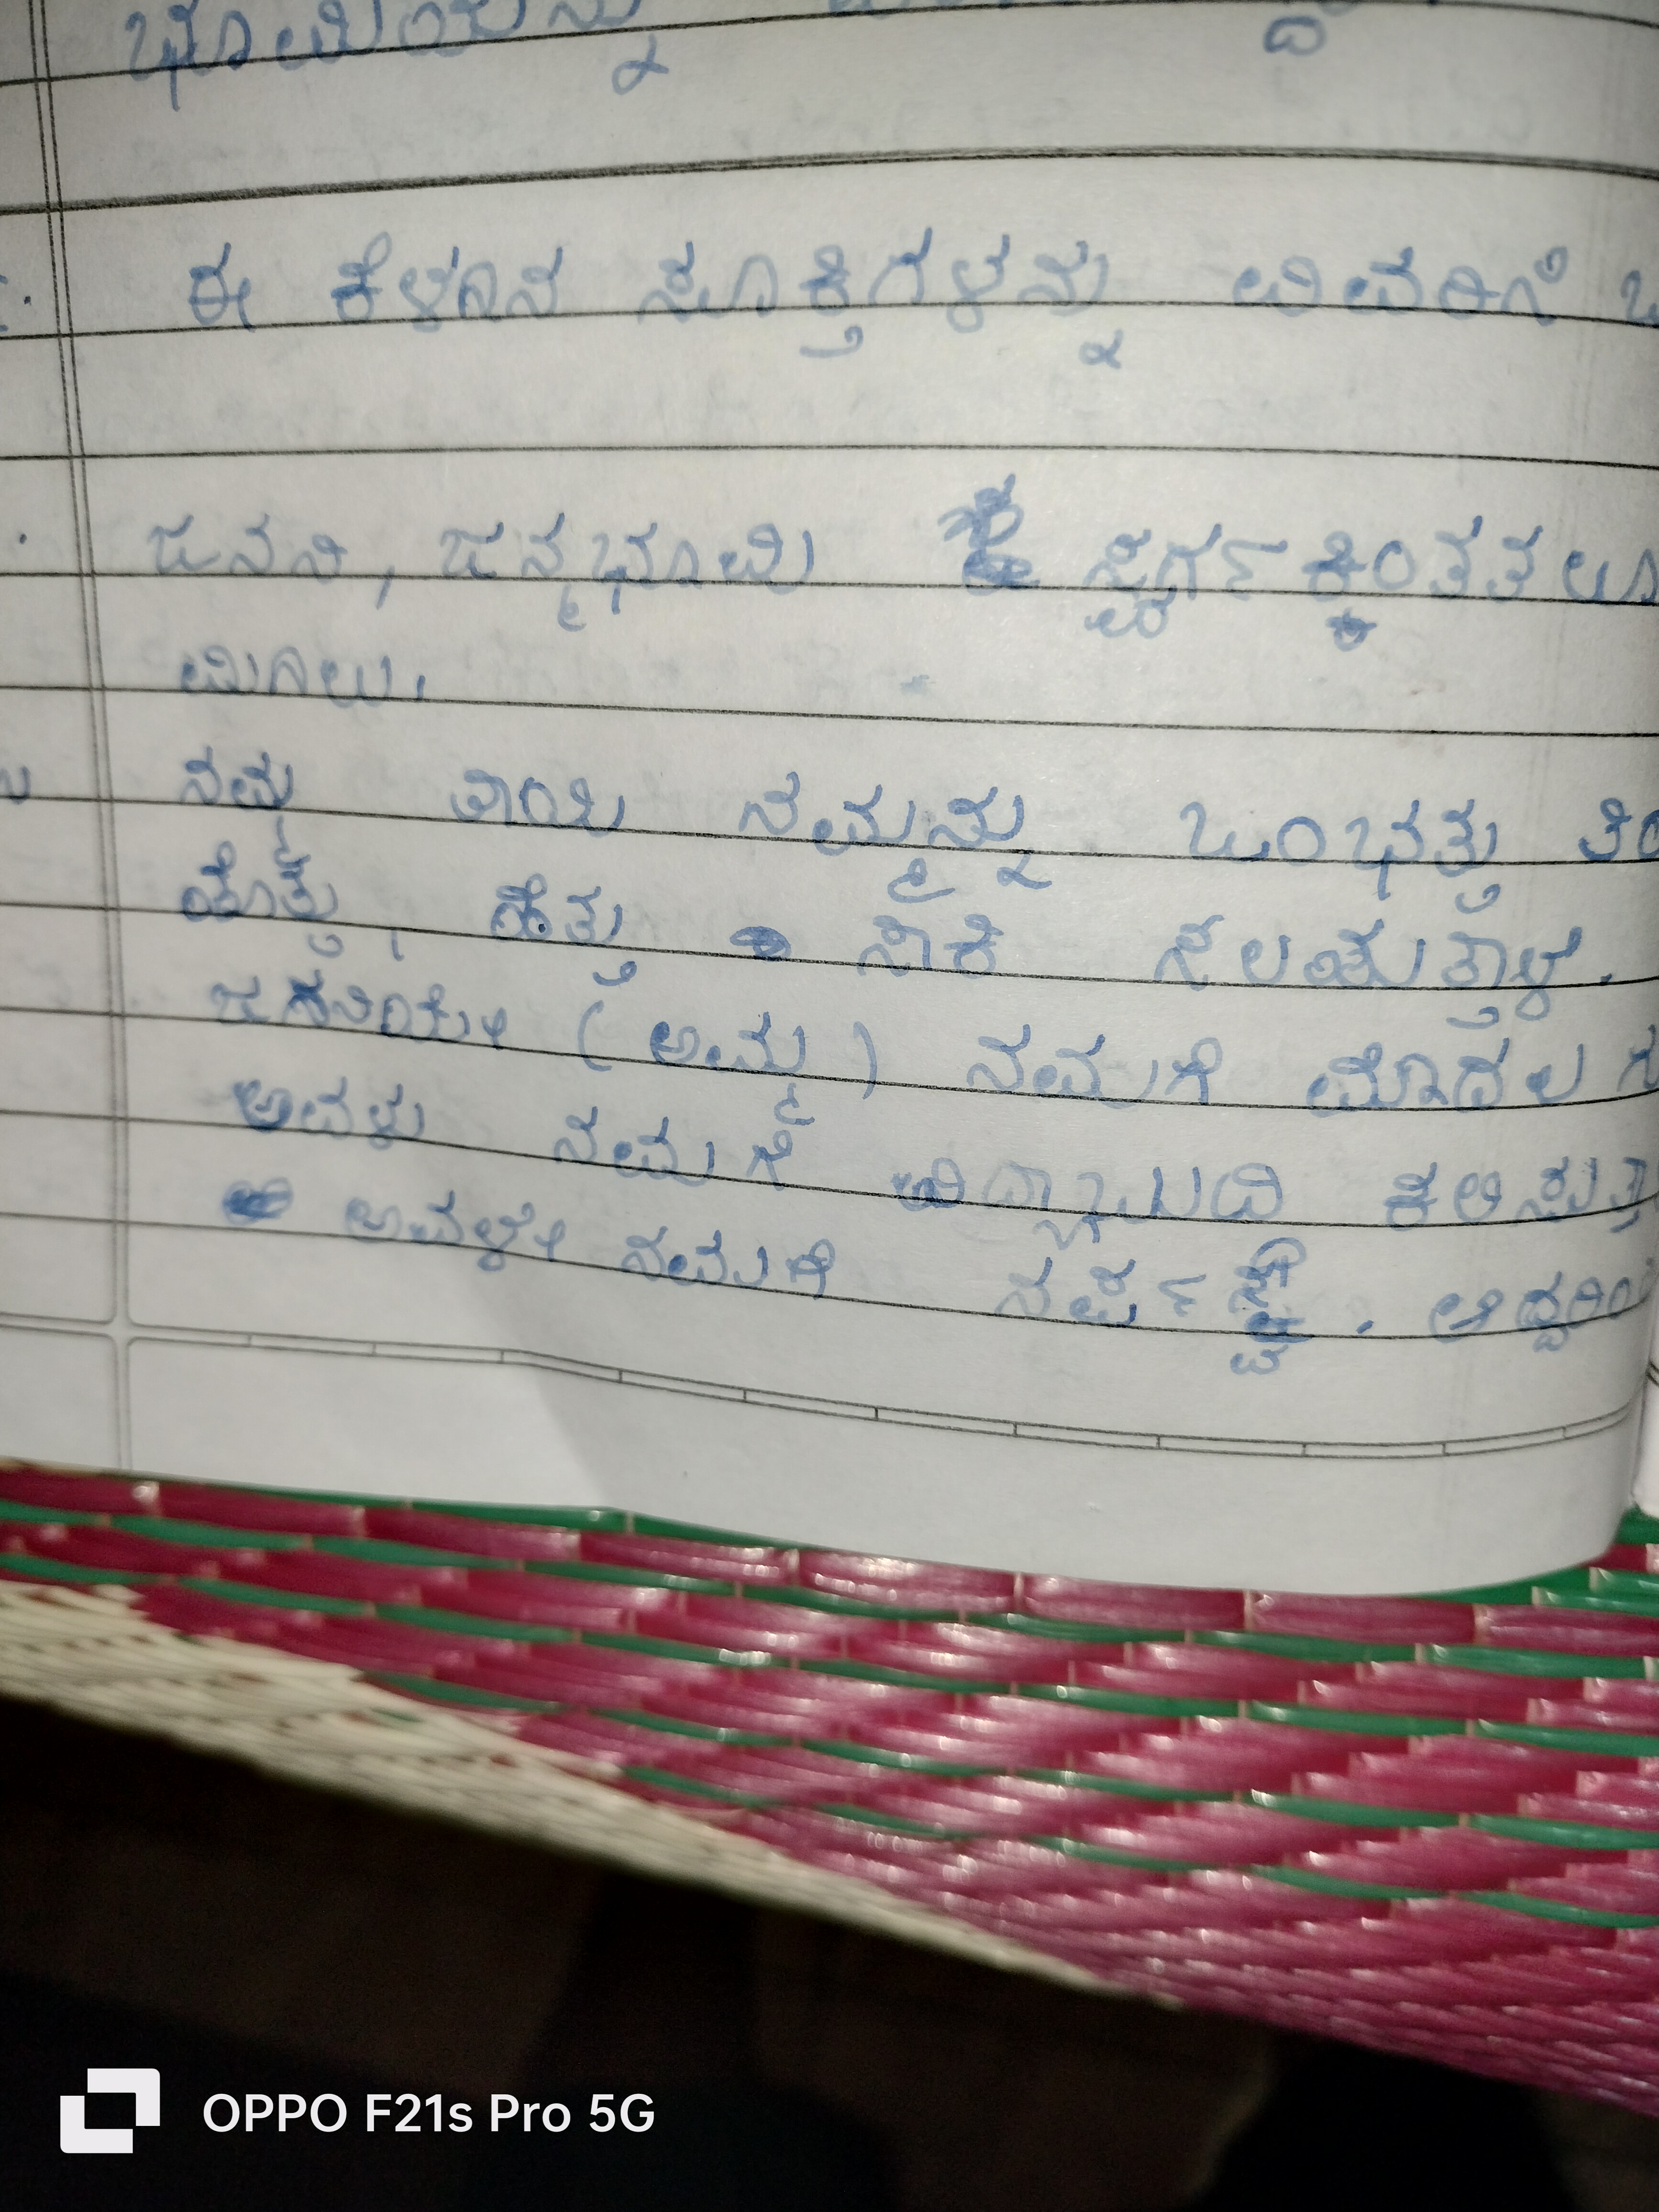 ಭೂಮಿಯನ್ನು
ಈ ಕೆಳಗಿನ ಸೂಕ್ತಿಗಳನ್ನು ವಿವರಿಗೆ
ಜನನಿ, ಜನ್ಮಭೂಮಿ ಸ್ವರ್ಗಕ್ಕಿಂತತಲೂ
ಮಿಗಿಲು.
ನಮ್ಮ ತಾಯಿ ನಮ್ಮನ್ನು ಒಂಭತ್ತು
ಹೊತ್ತು, ಹೆತ್ತು ಸಾಕಿ ಸಲಹುತ್ತಾಳೆ.
(ಅಮ್ಮ) ನಮಗೆ ಮೊದಲ
ಅವಳು ನಮಗೆ ಕಲಿಸುತ್ತಾ
ಅವಳೇ ನಮಗೆ
OPPO F21s Pro 5G